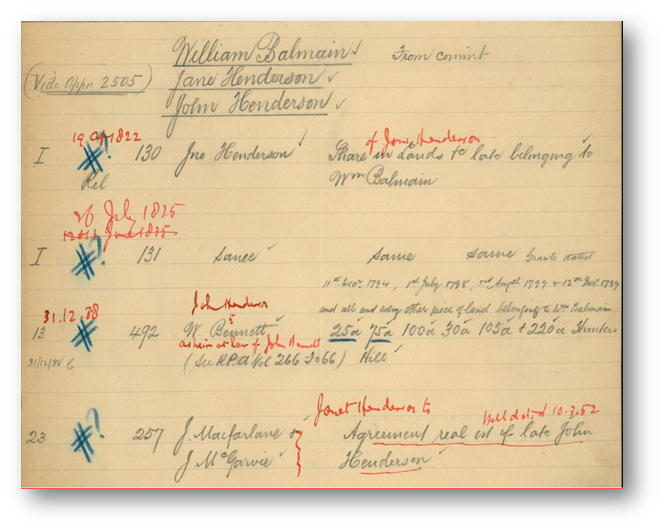 William Balmain From comint
(Vide Appn 2505)
Jane Henderson
John Henderson
19 Ap 1822 of Jane Henderson
I # ? 130 Jno Henderson Share in Lands &c late belonging to
Rel Wm Balmain
26 July 1825
12 & 13 June 1825
I # ? 131 Same Same Same Grants dated
11th Decr. 1794, 1st July 1798, Augst 1799 & 12th Nov. 1799
31.12.88 John Henderson and all and every other piece of land belonging to Wm Balmain
to
13 # 492 W. Bennett 25a 75a 100a 30a 105a + 220a Hunters
as heir at law of John
31/12/88 6 (See R.P.A Vol 266 Fo 66) Hill
Janet Henderson to Will dated 10.3.52
23 # ? 257 J. Macfarlane & Agreement real est of late John
J. McGarvie Henderson